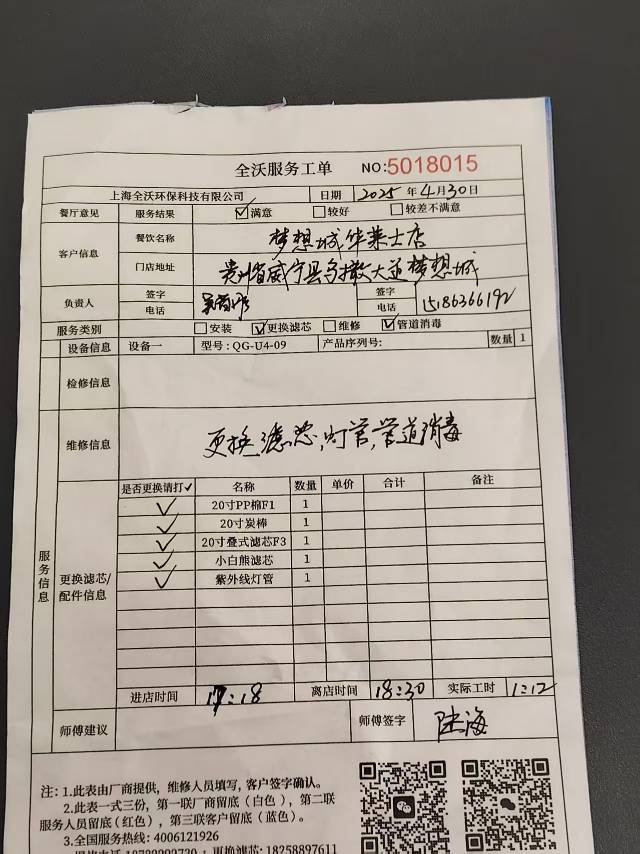 全沃服务工单 NO:5018015
上海全沃环保科技有限公司 日期 2025年4月30日
餐厅意见 服务结果 ☑满意 □较好 □较差不满意
客户信息 餐饮名称 梦想城华莱士店
门店地址 贵州省威宁县乌撒大道梦想城
负责人 签字 电话 签字 电话 15186366192
服务类别 □安装 ☑更换滤芯 □维修 ☑管道消毒
设备信息 设备一 型号:QG-U4-09 产品序列号: 数量 1
检修信息
维修信息 更换滤芯,灯管,管道消毒
服务信息
更换滤芯/配件信息
是否更换请打✓ 名称 数量 单价 合计 备注
✓ 20寸PP棉F1 1
✓ 20寸炭棒 1
✓ 20寸叠式滤芯F3 1
✓ 小白熊滤芯 1
✓ 紫外线灯管 1
进店时间 17:18 离店时间 18:30 实际工时 1:12
师傅建议 师傅签字 陆海
注:1.此表由厂商提供,维修人员填写,客户签字确认。
2.此表一式三份,第一联厂商留底(白色),第二联
服务人员留底(红色),第三联客户留底(蓝色)。
3.全国服务热线:4006121926
更换滤芯:18258897611